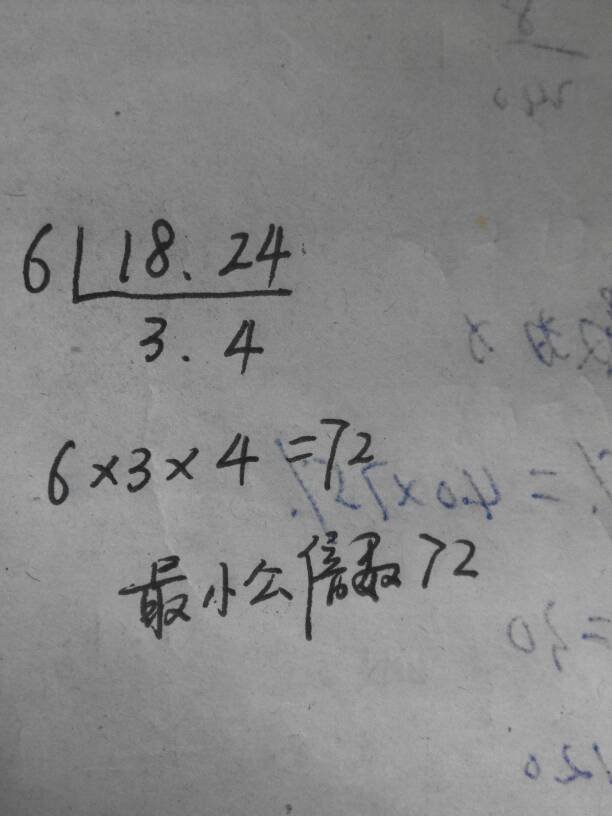 6 18.24
3.4
6×3×4=72
最小公倍数72